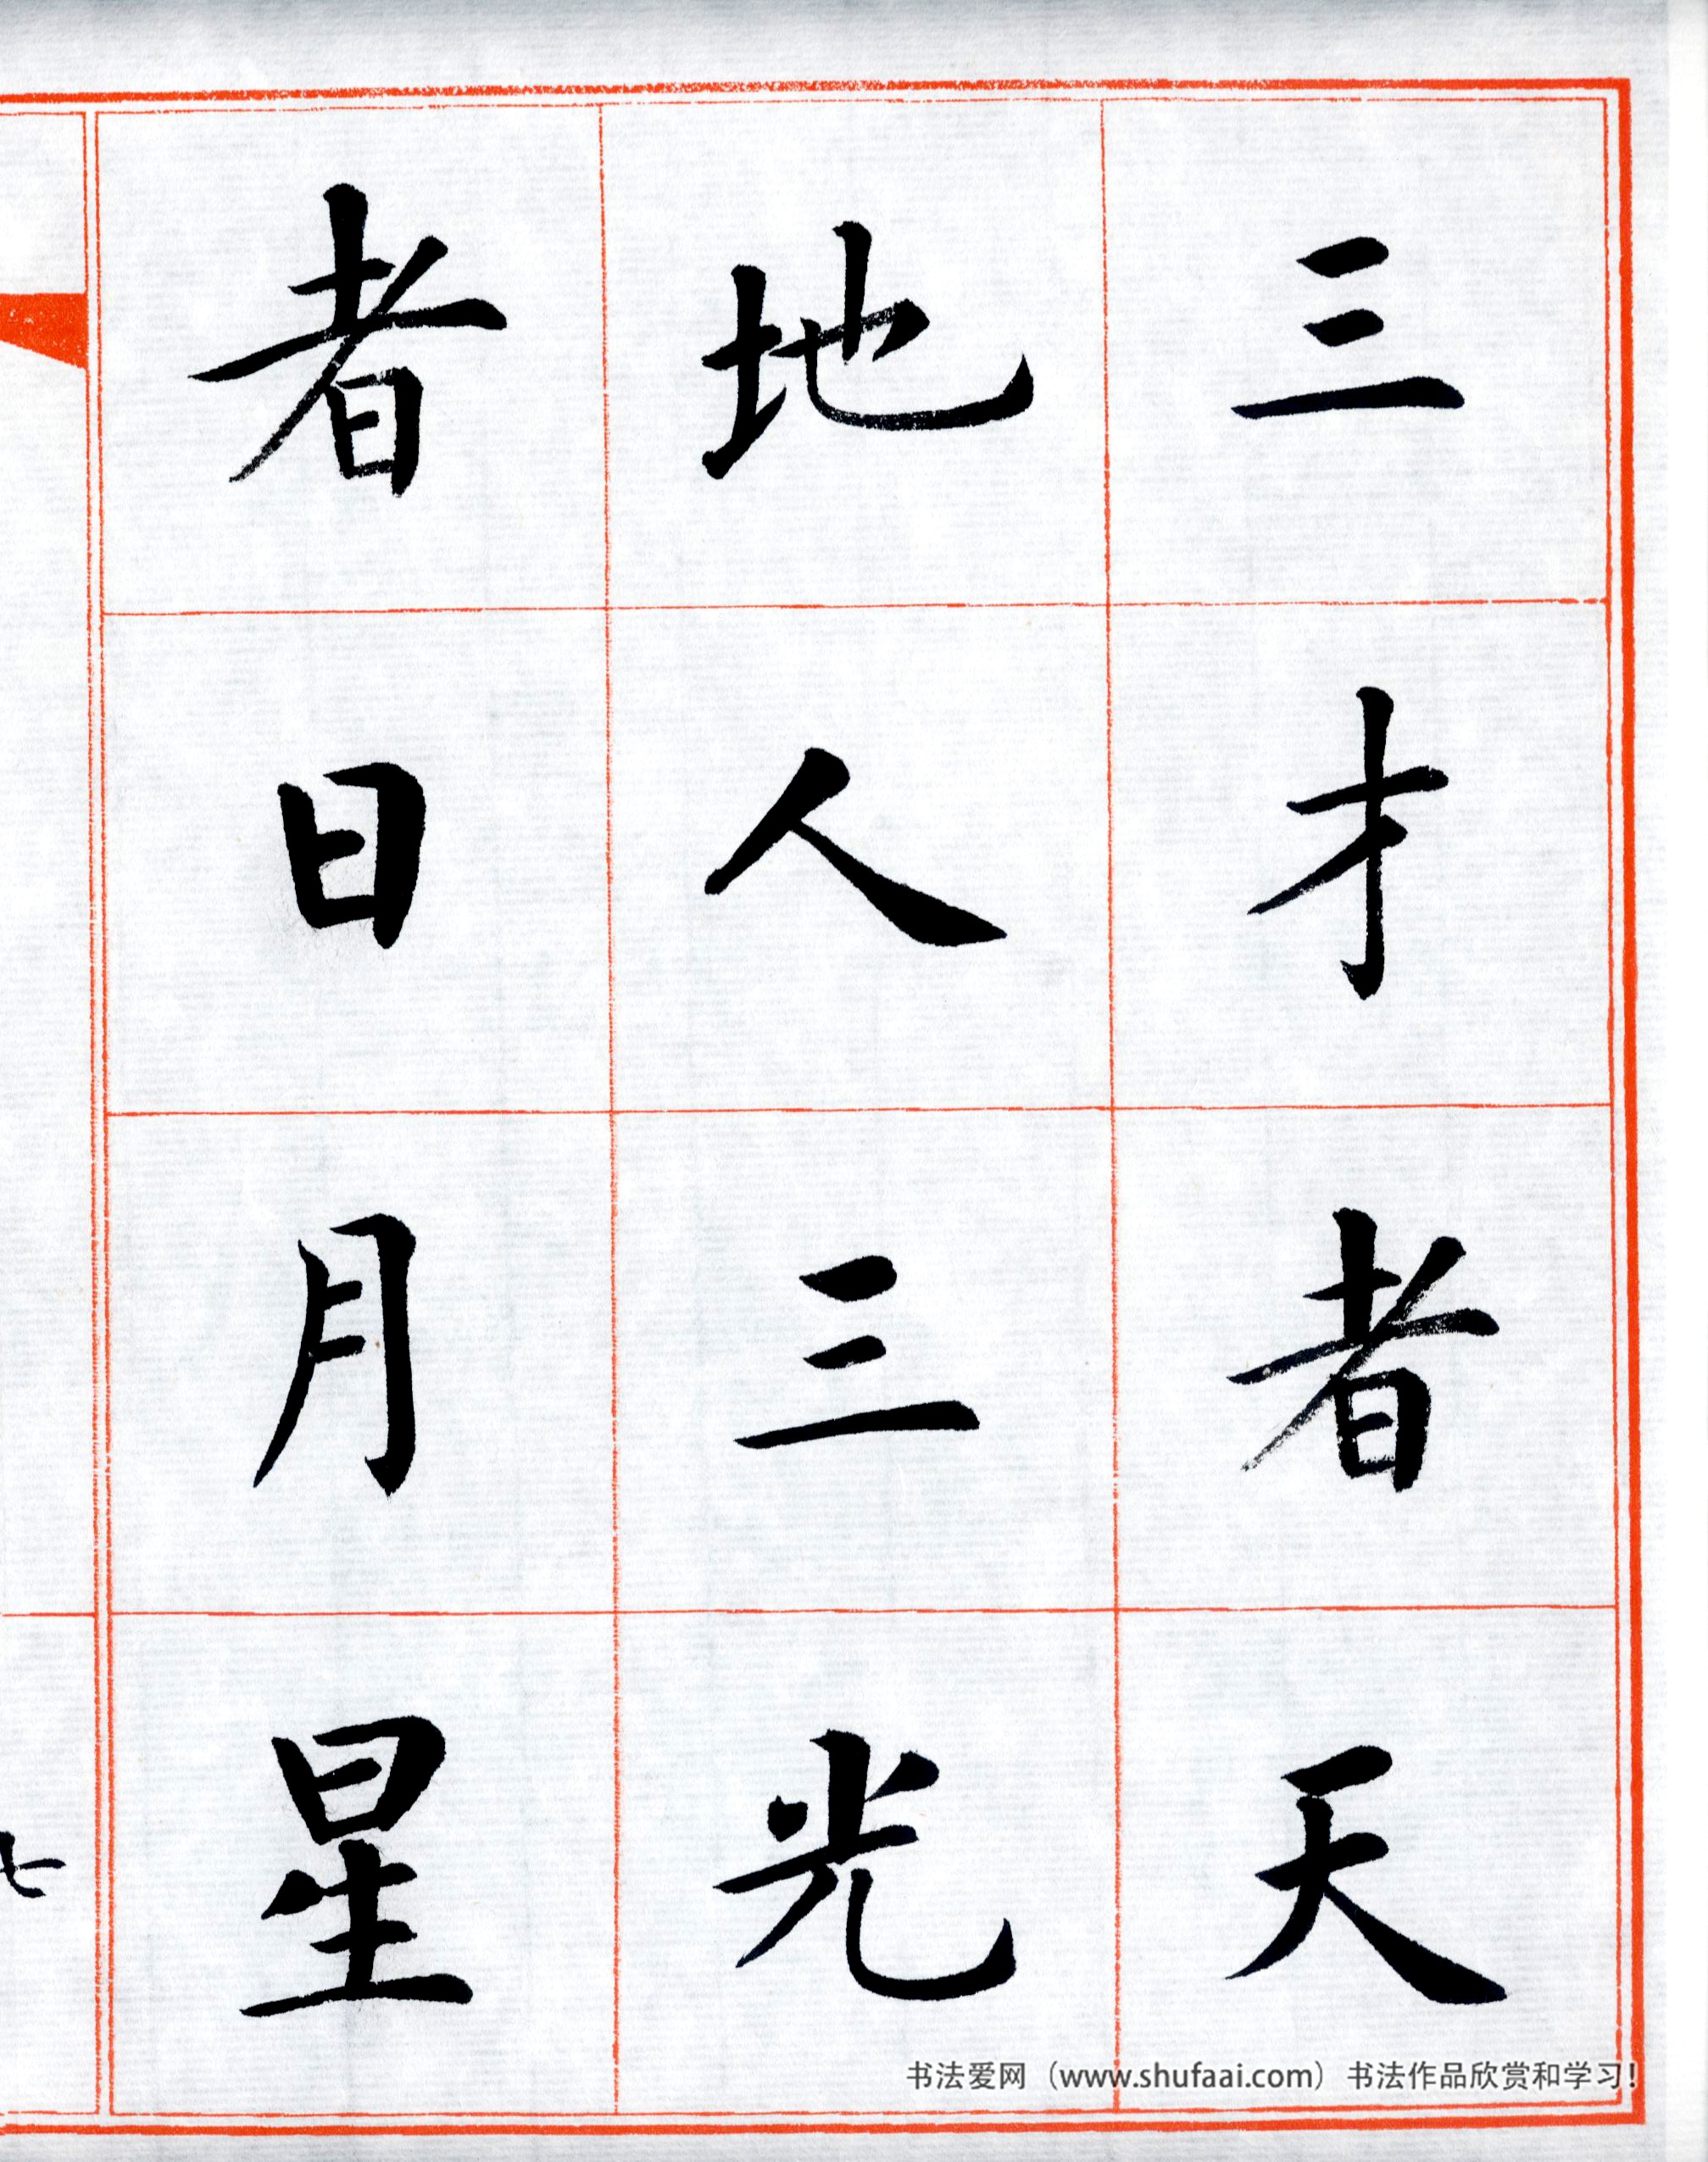 三才者天
地人三光
者日月星
七
书法爱网（www.shufaai.com）书法作品欣赏和学习！